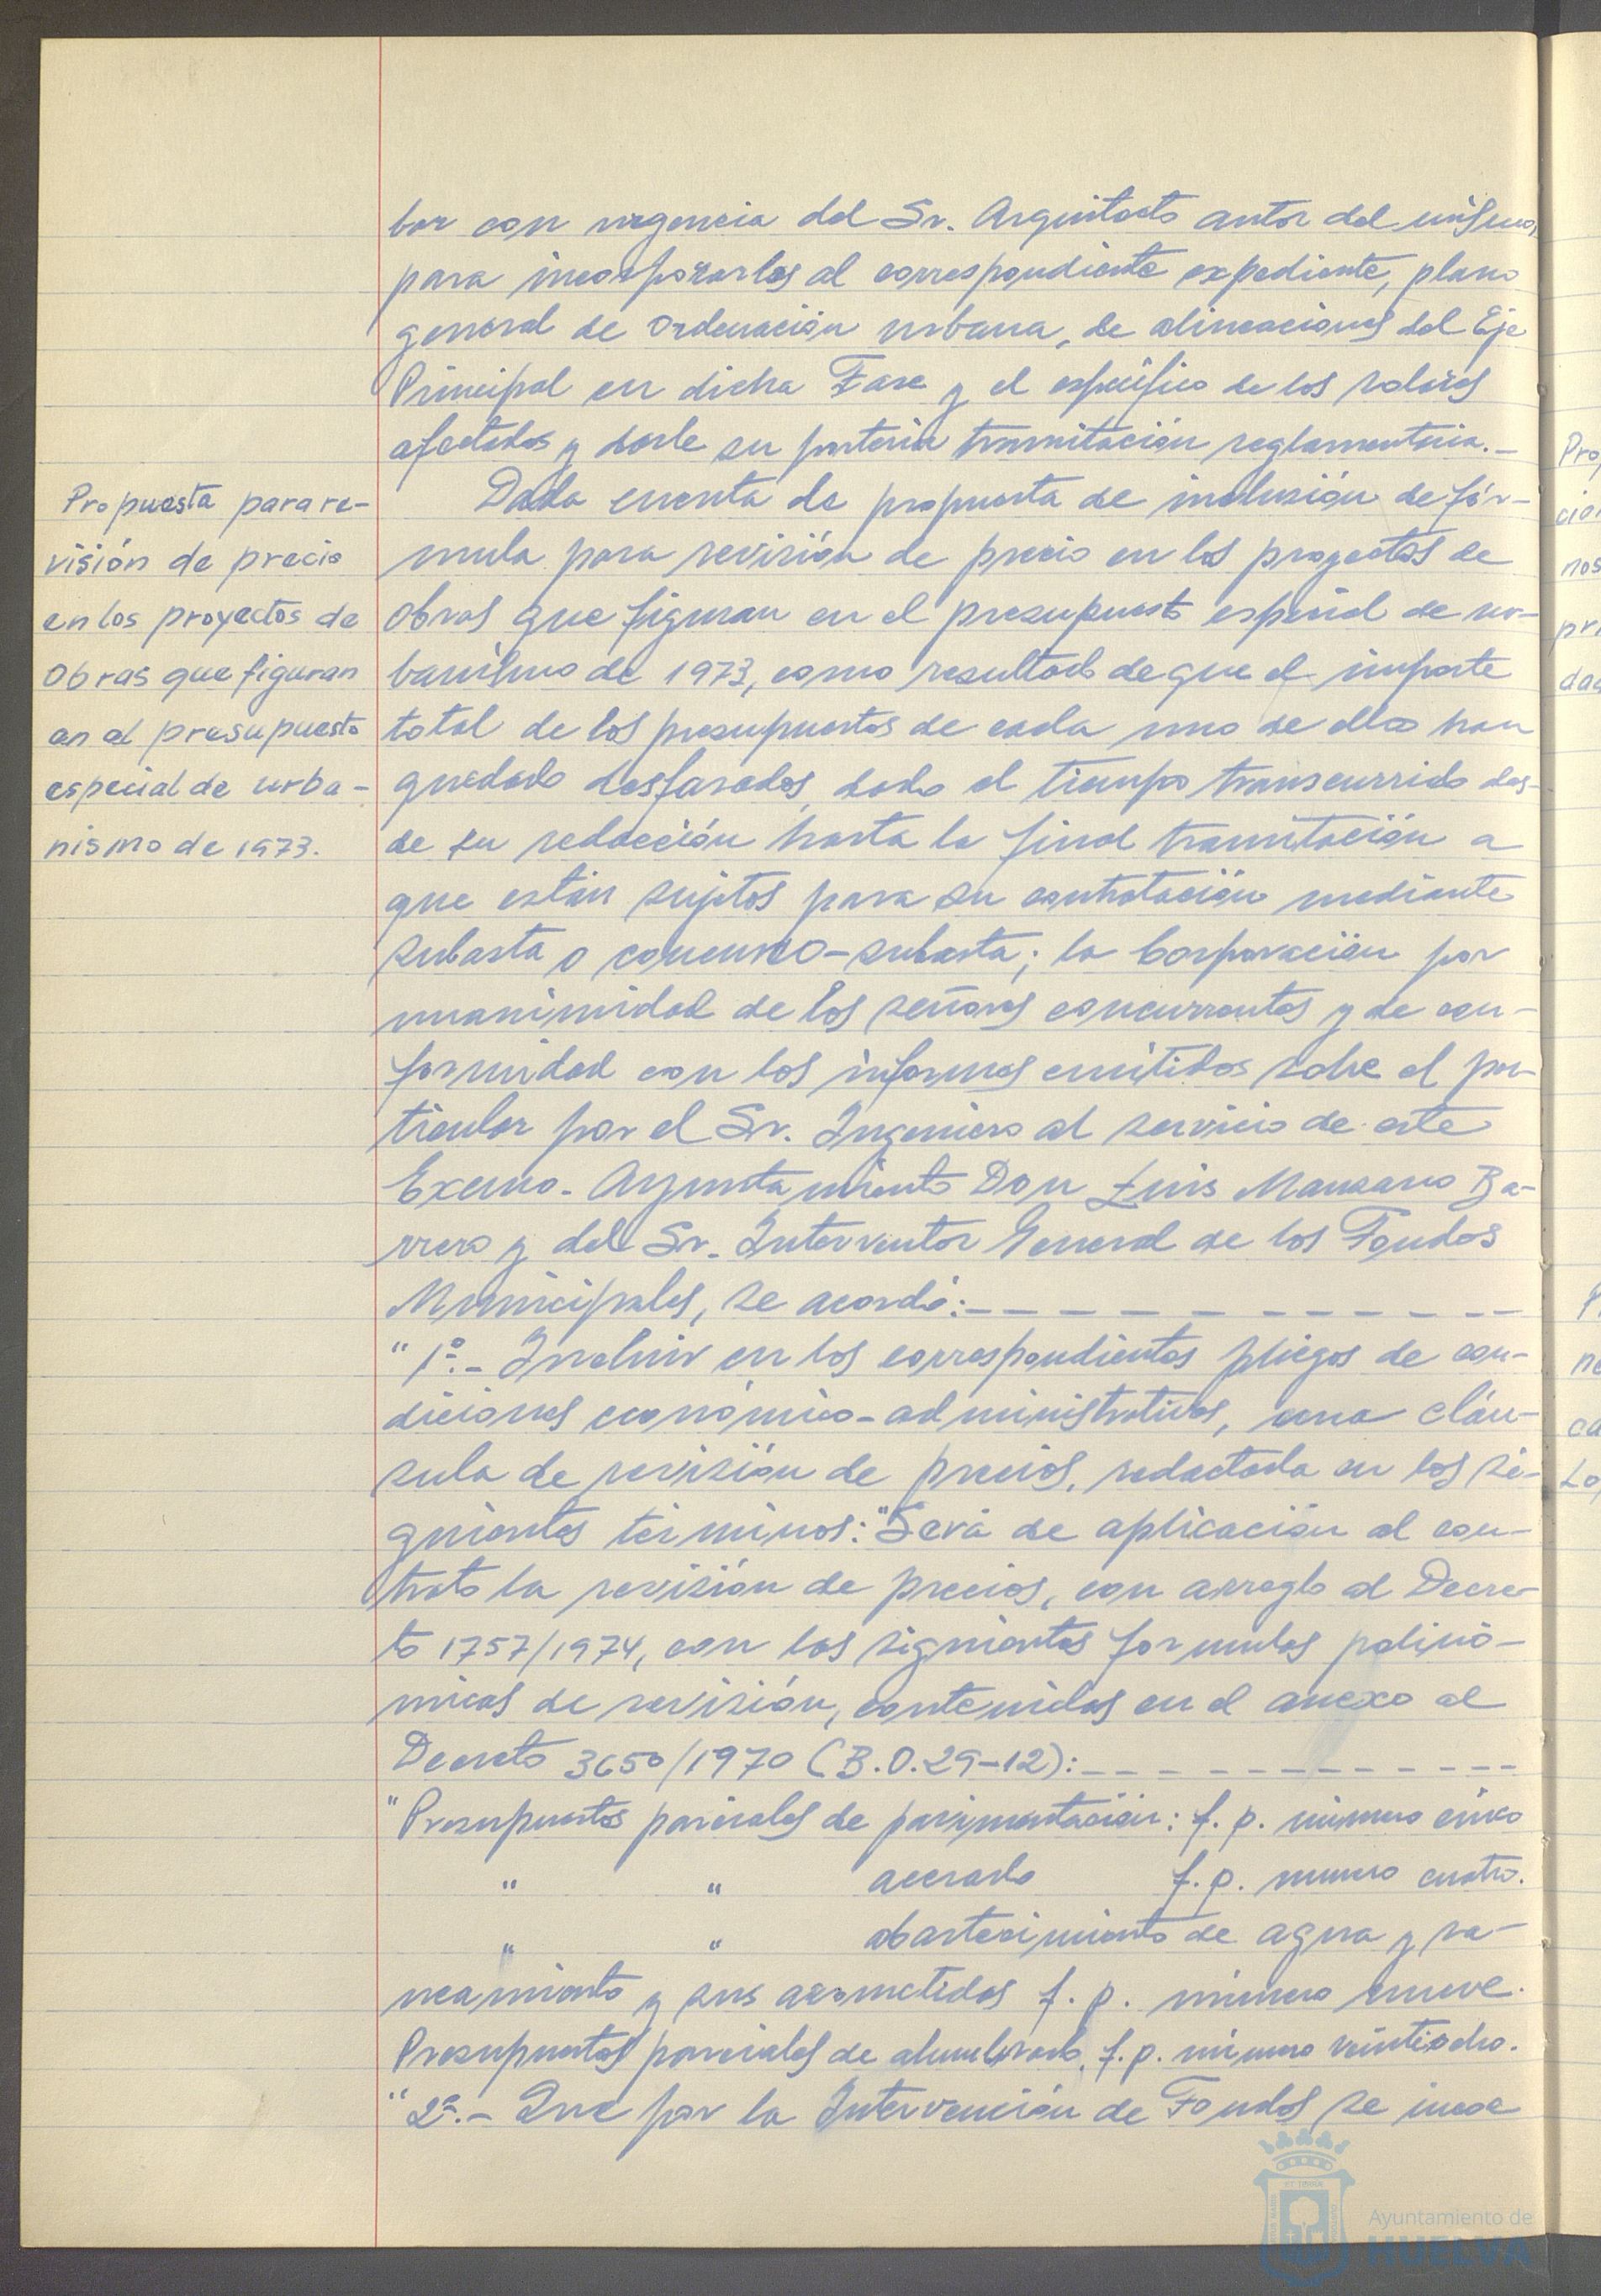 bar con urgencia del Sr. Arquitecto autor del mismo,
para incorporarlos al correspondiente expediente, plano
general de Ordenación urbana, de alineaciones del Eje
Principal en dicha Fase y el específico de los solares
afectados y darle su posterior tramitación reglamentaria.-
Propuesta para re-
visión de precio
en los proyectos de
Obras que figuran
en el presupuesto
especial de urba-
nismo de 1973.
Dada cuenta de propuesta de inclusión de fór-
mula para revisión de precio en los proyectos de
Obras que figuran en el presupuesto especial de ur-
banismo de 1973, como resultado de que el importe
total de los presupuestos de cada uno de ellos han
quedado desfasados, dado el tiempo transcurrido des-
de su redacción hasta la final tramitación a
que están sujetos para su contratación mediante
subasta o concurso-subasta; la Corporación por
unanimidad de los señores concurrentes y de con-
formidad con los informes emitidos sobre el par-
ticular por el Sr. Ingeniero al servicio de este
Excmo. Ayuntamiento Don Luis Manzano Ba-
rrero y del Sr. Interventor General de los Fondos
Municipales, se acordó:- - - - - - - - - - - -
"1º.- Incluir en los correspondientes pliegos de con-
diciones económico-administrativas, una cláu-
sula de revisión de precios, redactada en los si-
guientes términos: "Será de aplicación al con-
trato la revisión de precios, con arreglo al Decre-
to 1757/1974, con las siguientes formulas polinó-
micas de revisión, contenidas en el anexo al
Decreto 3650/1970 (B.O.29-12):- - - - - - - - - - - -
"Presupuestos parciales de pavimentación: f. p. número cinco
" " acerado f. p. numero cuatro.
" " abastecimiento de agua y sa-
neamiento y sus acometidas f. p. número nueve.
Presupuestos parciales de alumbrado, f. p. número veintiocho.
"2º.- Que por la Intervención de Fondos se
Ayuntamiento de
HUELVA